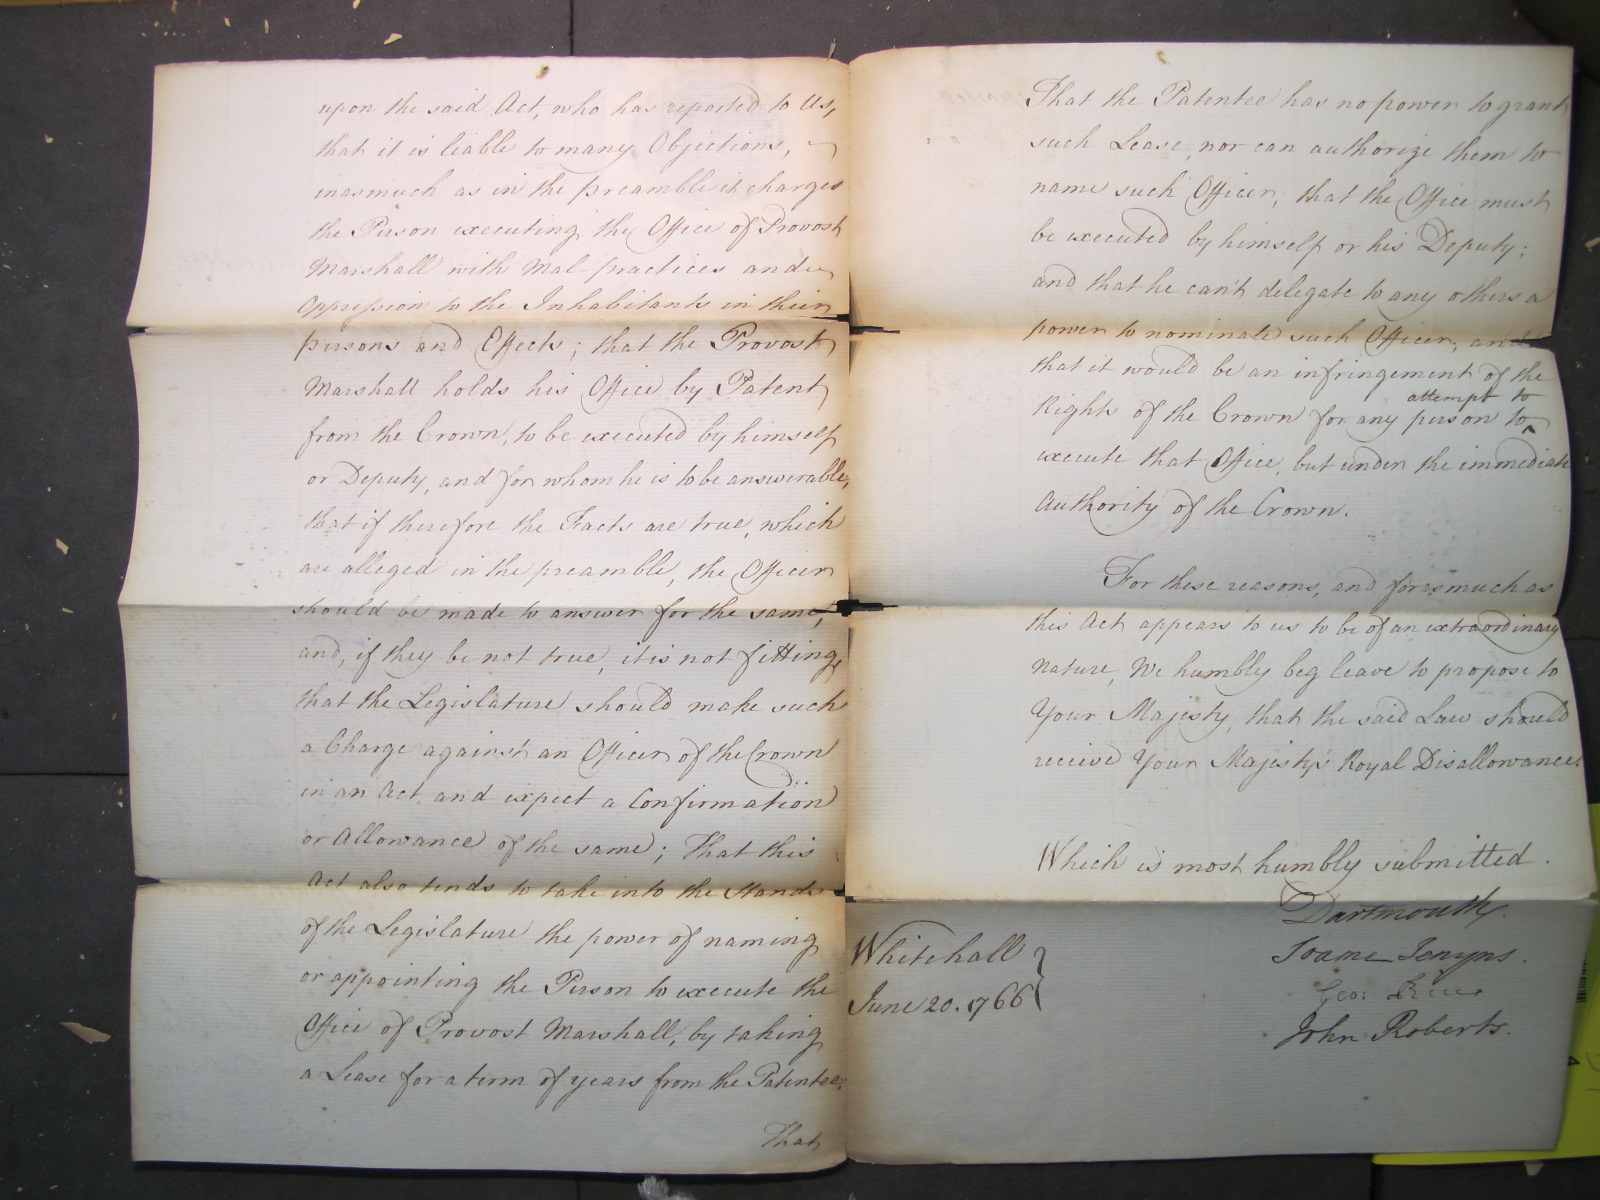 upon the said Act, who has reported to Us,
that it is liable to many Objections,
inasmuch as in the preamble it charges
the Person executing the Office of Provost
Marshall with Mal-practices and
Oppression to the Inhabitants in their
persons and Effects; that the Provost
Marshall holds his Office by Patent
from the Crown, to be executed by himself
or Deputy, and for whom he is to be answerable,
that if therefore the Facts are true, which
are alleged in the preamble, the Officer
should be made to answer for the same,
and, if they be not true, it is not fitting,
that the Legislature should make such
a Charge against an Officer of the Crown
in an Act, and expect a Confirmation
or Allowance of the same; That this
Act also tends to take into the Hands
of the Legislature the power of naming
or appointing the Person to execute the
Office of Provost Marshall, by taking
a Lease for a term of years from the Patentee;
That
That the Patentee has no power to grant
such Lease, nor can authorize them to
name such Officer; that the Office must
be executed by himself or his Deputy;
and that he can't delegate to any others a
power to nominate such Officer; and
that it would be an infringement of the
attempt to
Rights of the Crown for any person to
execute that Office, but under the immediate
Authority of the Crown.
For these reasons, and forasmuch as
this Act appears to us to be of an extraordinary
nature, We humbly beg leave to propose to
Your Majesty, that the said Law should
receive Your Majesty's Royal Disallowance.
Which is most humbly submitted.
Dartmouth.
Soame Jenyns.
Geo: Rice
John Roberts.
Whitehall
June 20. 1766